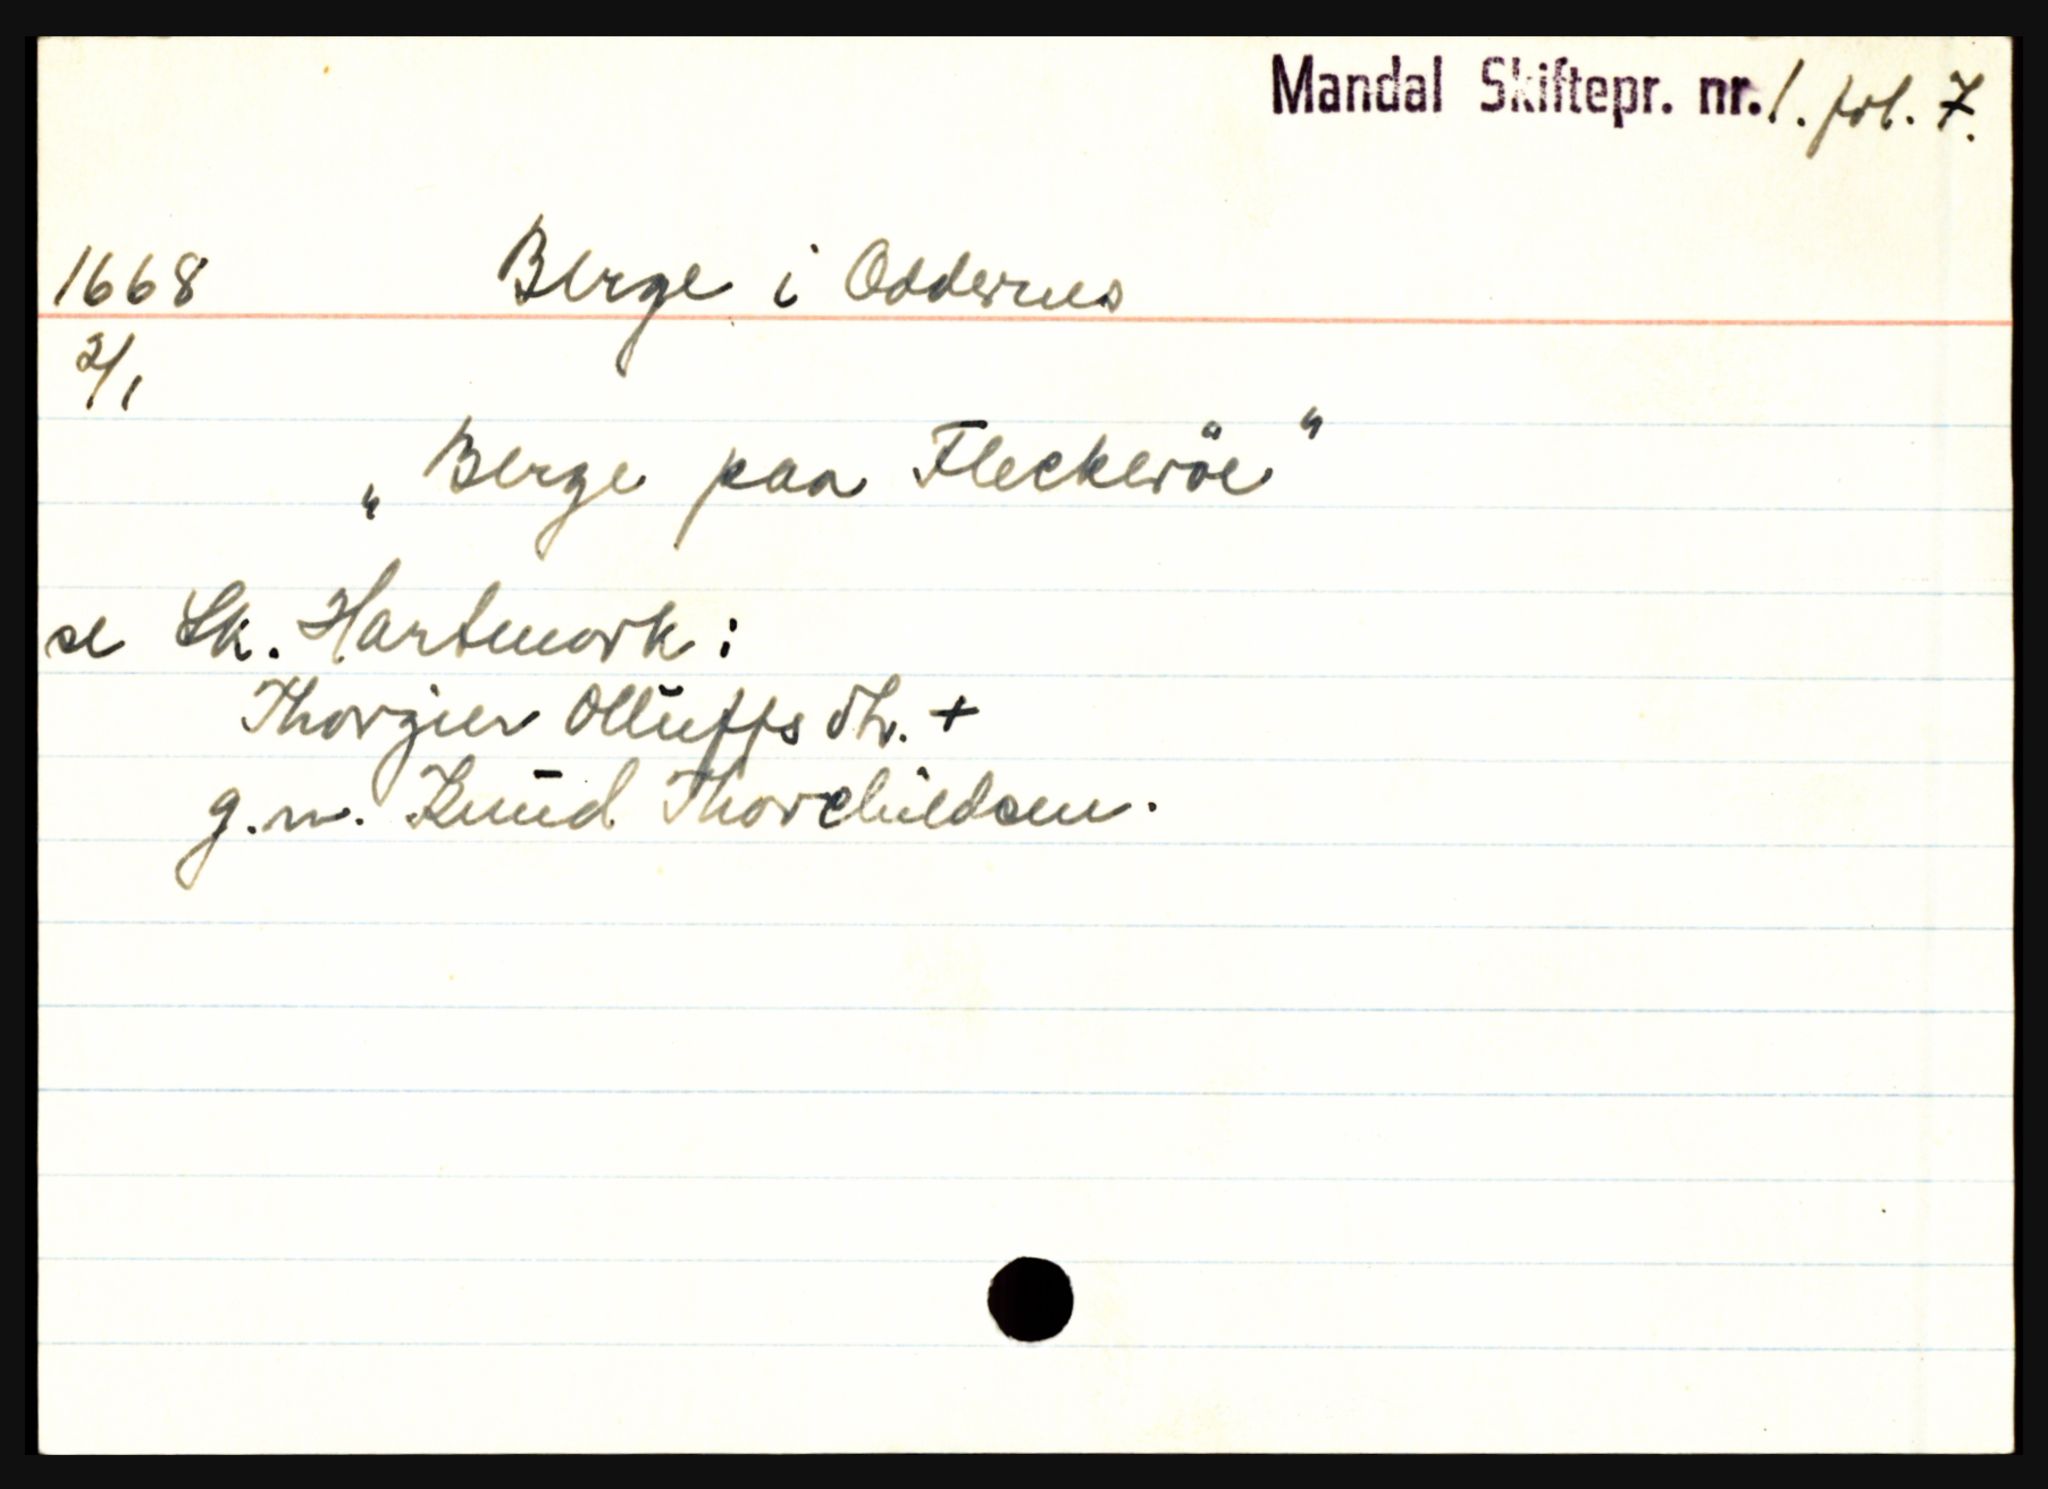 Mandal Skiftepr. nr. 1. fol. 7.
1668 Berge i Oddernes
2/1
„Berge paa Fleckeröe"
se Sk. Hartmark:
Thorgier Olluffsdtr. +
g.m. Knud Thorchildsen.